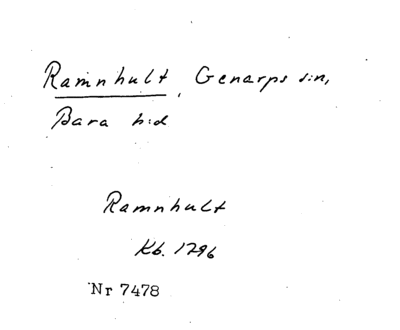 Ramnhult, Genarps sn,
Bara hd
Ramnhult
Kb. 1296
Nr 7478